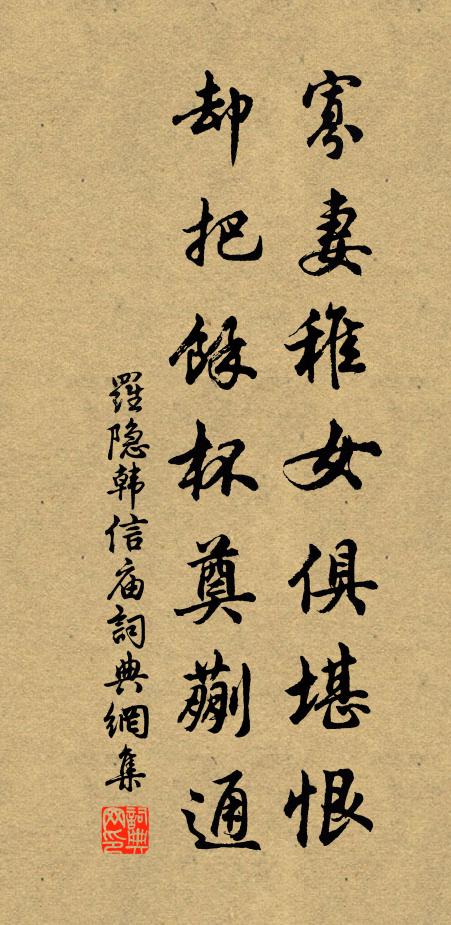 寡妻稚女俱堪恨
却把餘杯奠蒯通
羅隐韩信庙詞典網集
詞典網印